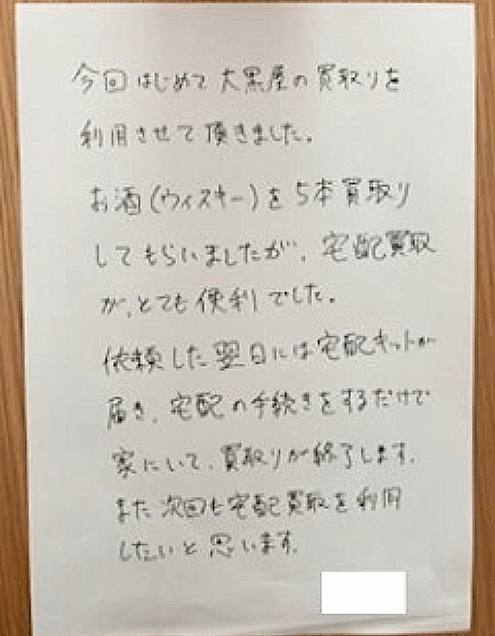 今回はじめて大黒屋の買取りを
利用させて頂きました。
お酒(ウィスキー)を5本買取り
してもらいましたが、宅配買取
が、とても便利でした。
依頼した翌日には宅配キットが
届き、宅配の手続きをするだけで
家にいて、買取りが終了します。
また次回も宅配買取を利用
したいと思います。